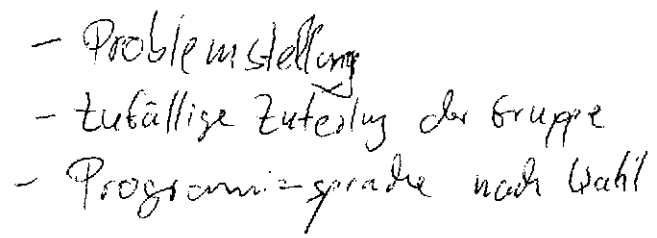 - Problemstellung
- Zufällige Zuteilung der Gruppe
- Programmiersprache nach Wahl